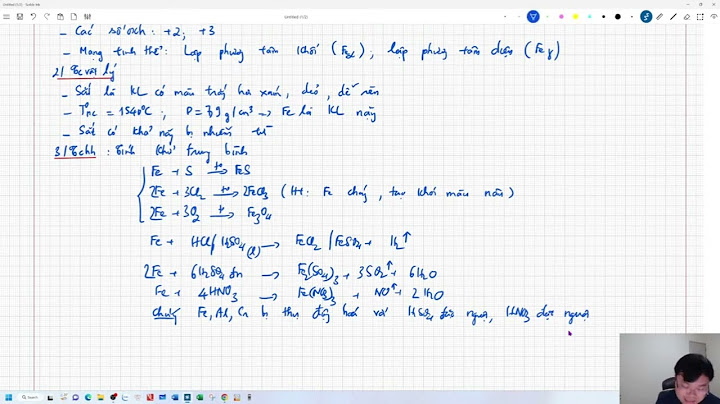 Untitled (1/2)
– Các số oxh: +2; +3
– Mạng tinh thể: Lập phương tâm khối (Feα); lập phương tâm diện (Feγ)
2/ Tc vật lý
– Sắt là KL có màu trắng hơi xám, dẻo, dễ rèn
– T°nc = 1540°C; D = 7,9 g/cm³ → Fe là KL nặng
– Sắt có khả năng bị nhiễm từ
3/ Tchh: Tính khử trung bình
Fe + S →(t°) FeS
2Fe + 3Cl₂ →(t°) 2FeCl₃ (Ht: Fe cháy, tạo khói màu nâu)
2Fe + 3O₂ →(t°) Fe₃O₄
Fe + HCl/H₂SO₄(l) → FeCl₂/FeSO₄ + H₂↑
2Fe + 6H₂SO₄ đn → Fe₂(SO₄)₃ + 3SO₂↑ + 6H₂O
Fe + 4HNO₃ → Fe(NO₃)₃ + NO↑ + 2H₂O
Chú ý Fe, Al, Cr bị thụ động hoá với H₂SO₄ đặc nguội, HNO₃ đặc nguội